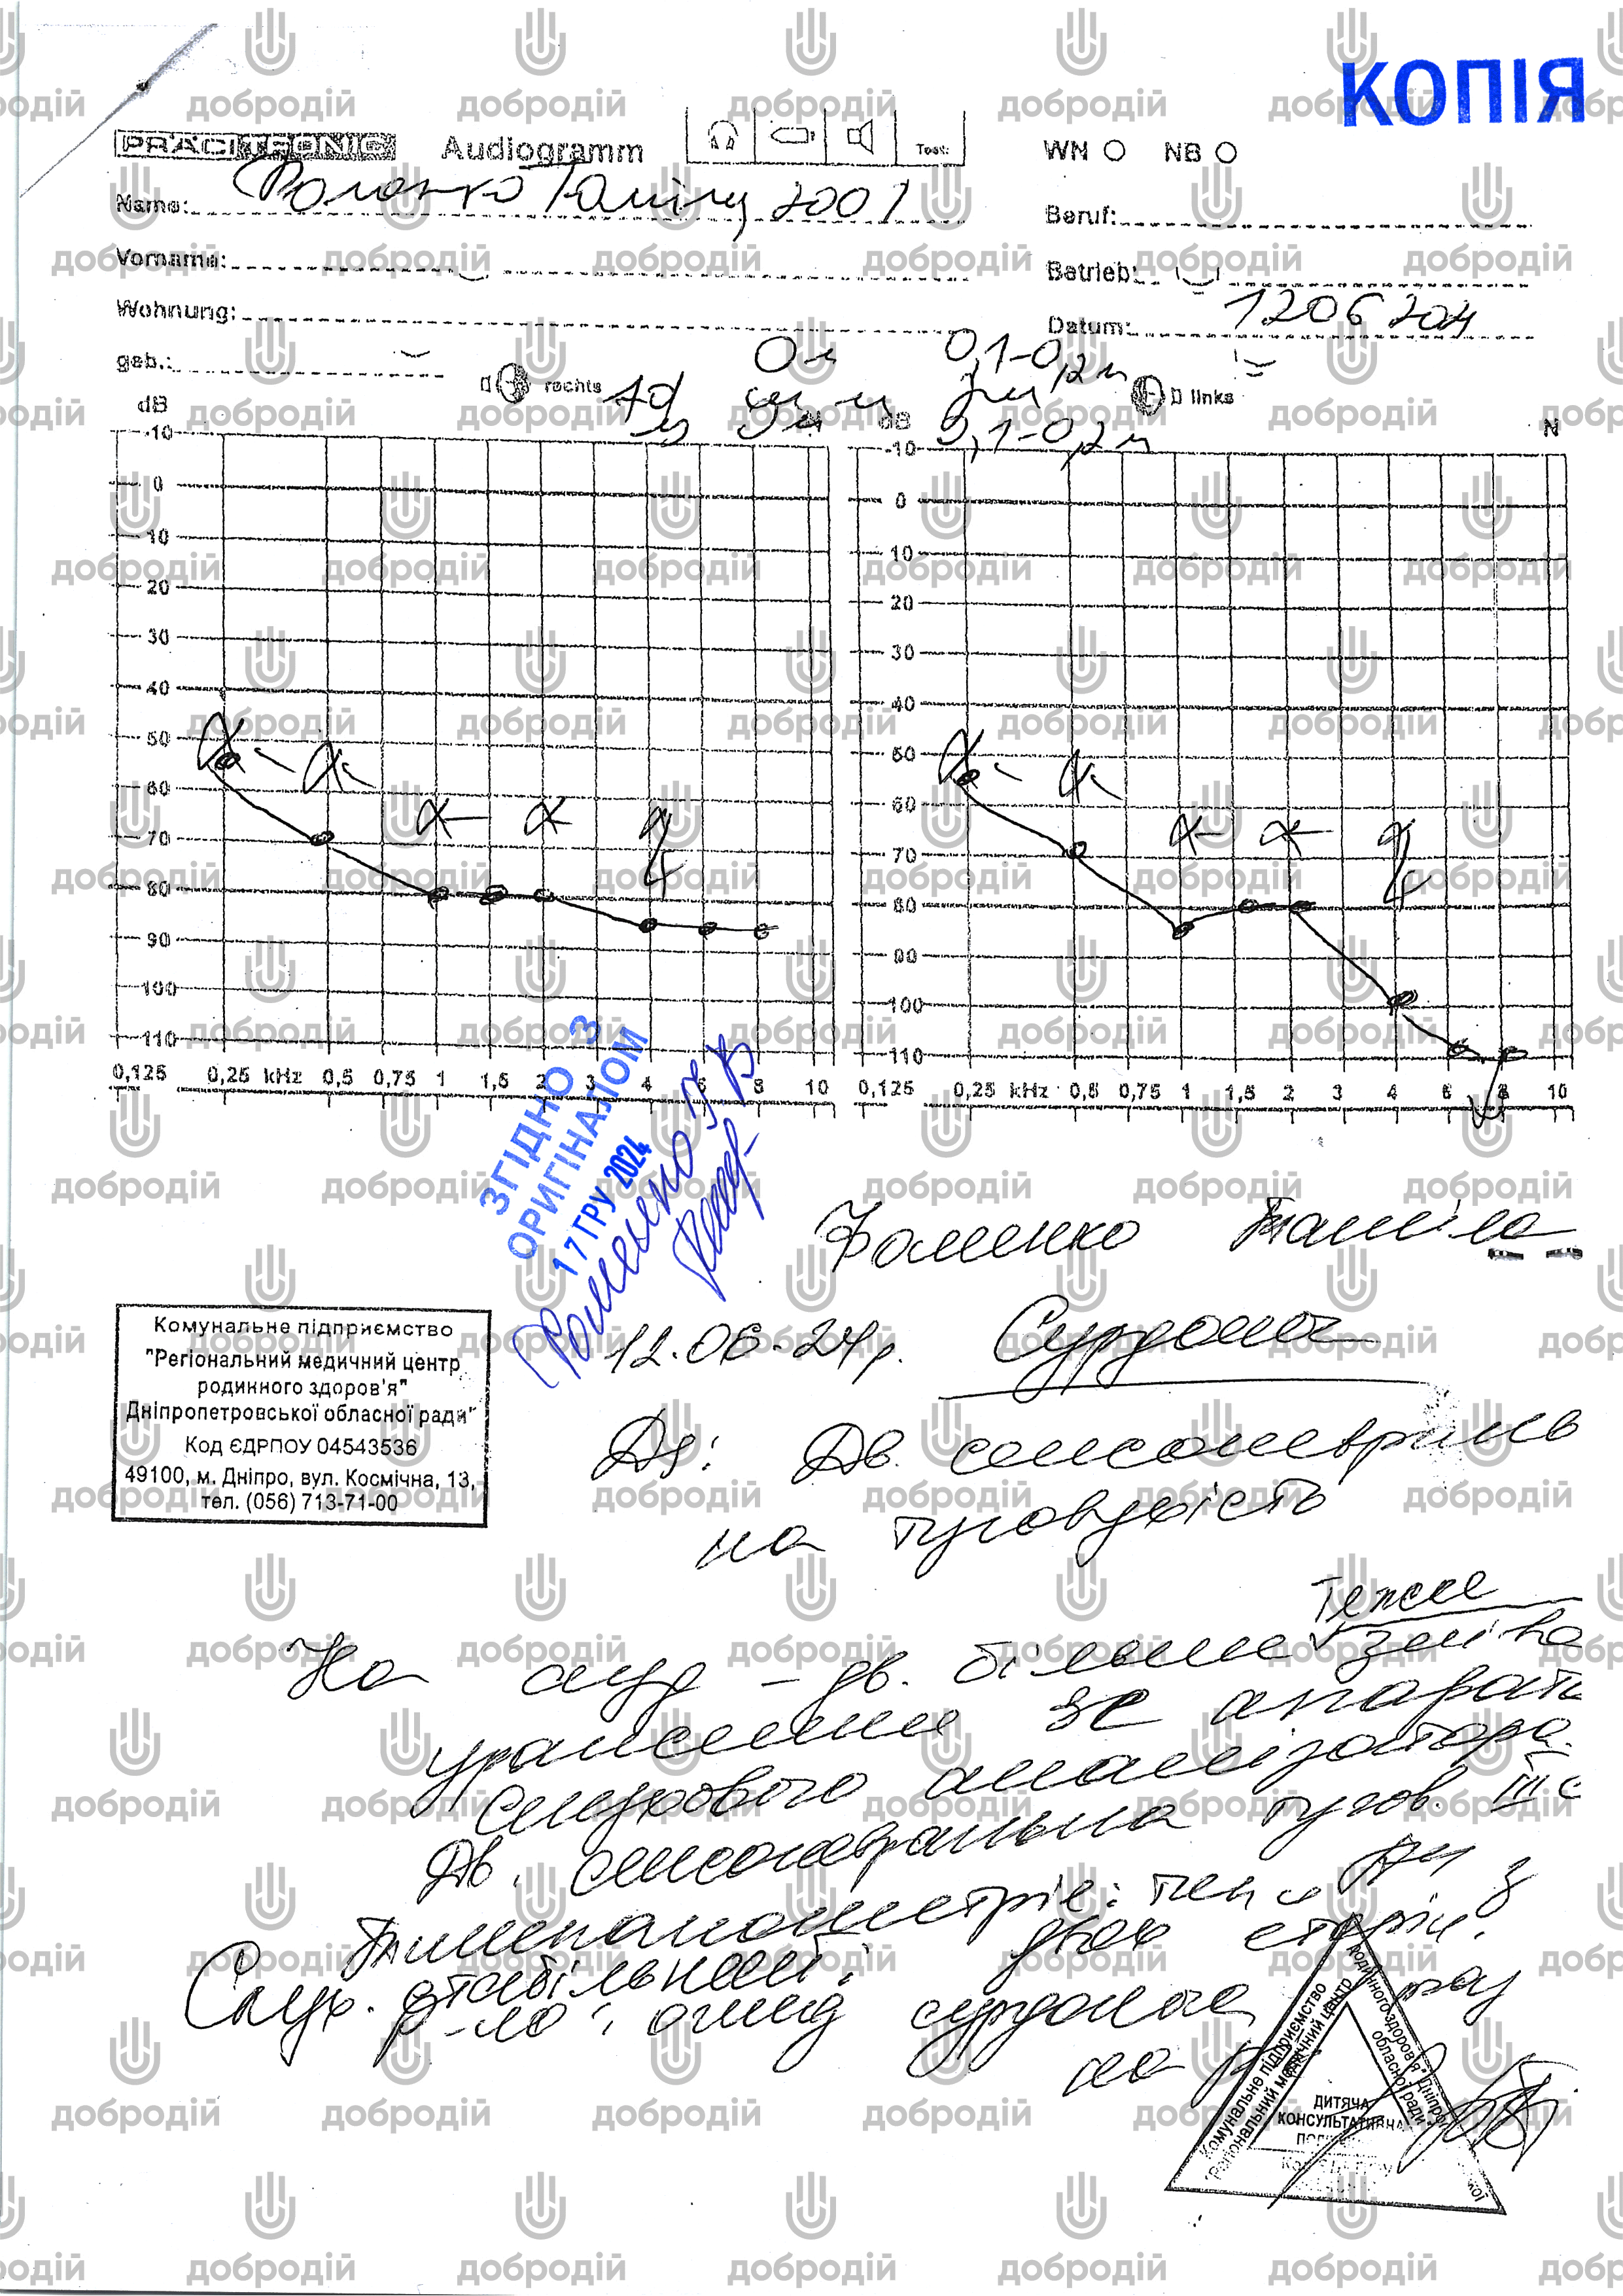 КОПІЯ
PRÄCITRONIC Audiogramm Test: WN NB
Name: Фоменко 2007
Beruf:
Vorname:
Betrieb:
Wohnung:
Datum: 12 06 2024
geb.:
0м 0,1-0,2м
rechts Ad шм links
0м 0,1-0,2м
dB dB N
-10 -10
0 0
10 10
20 20
30 30
40 40
50 50
60 60
70 70
80 80
90 90
100 100
110 110
0,125 0,25 kHz 0,5 0,75 1 1,5 2 3 4 6 8 10 0,125 0,25 kHz 0,5 0,75 1 1,5 2 3 4 6 8 10
ЗГІДНО З
ОРИГІНАЛОМ
17 ГРУ 2024
Фоменко
Комунальне підприємство
"Регіональний медичний центр
родинного здоров'я"
Дніпропетровської обласної ради"
Код ЄДРПОУ 04543536
49100, м. Дніпро, вул. Космічна, 13,
тел. (056) 713-71-00
12.06.24р. Сурдолог
Дз: Дв. сенсоневраль
на туговухість
На ауд - дв. більше зміна
ураження зс апарата
слухового аналізатора.
Дв. сенсоневральна тугов. III с
Тимпанометрія: тип „А" з
двох сторін.
Слух. стабільний.
р-но: огляд сурдолога раз
на
Комунальне підприємство
"Регіональний медичний центр
родинного здоров'я" Дніпропетровської
обласної ради"
ДИТЯЧА
КОНСУЛЬТАТИВНА
добродій